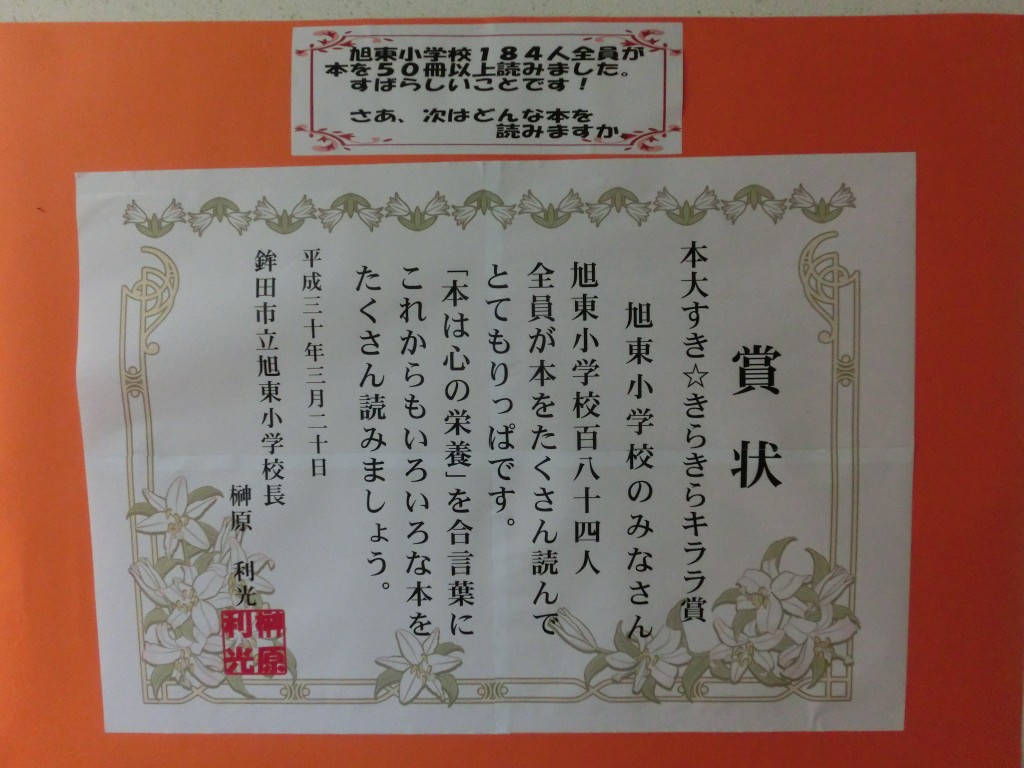 旭東小学校184人全員が
本を50冊以上読みました。
すばらしいことです!
さあ、次はどんな本を
読みますか。
賞状
本大すき☆きらきらキララ賞
旭東小学校のみなさん
旭東小学校百八十四人
全員が本をたくさん読んで
とてもりっぱです。
「本は心の栄養」を合言葉に
これからもいろいろな本を
たくさん読みましょう。
平成三十年三月二十日
鉾田市立旭東小学校長
榊原 利光
榊原
利光